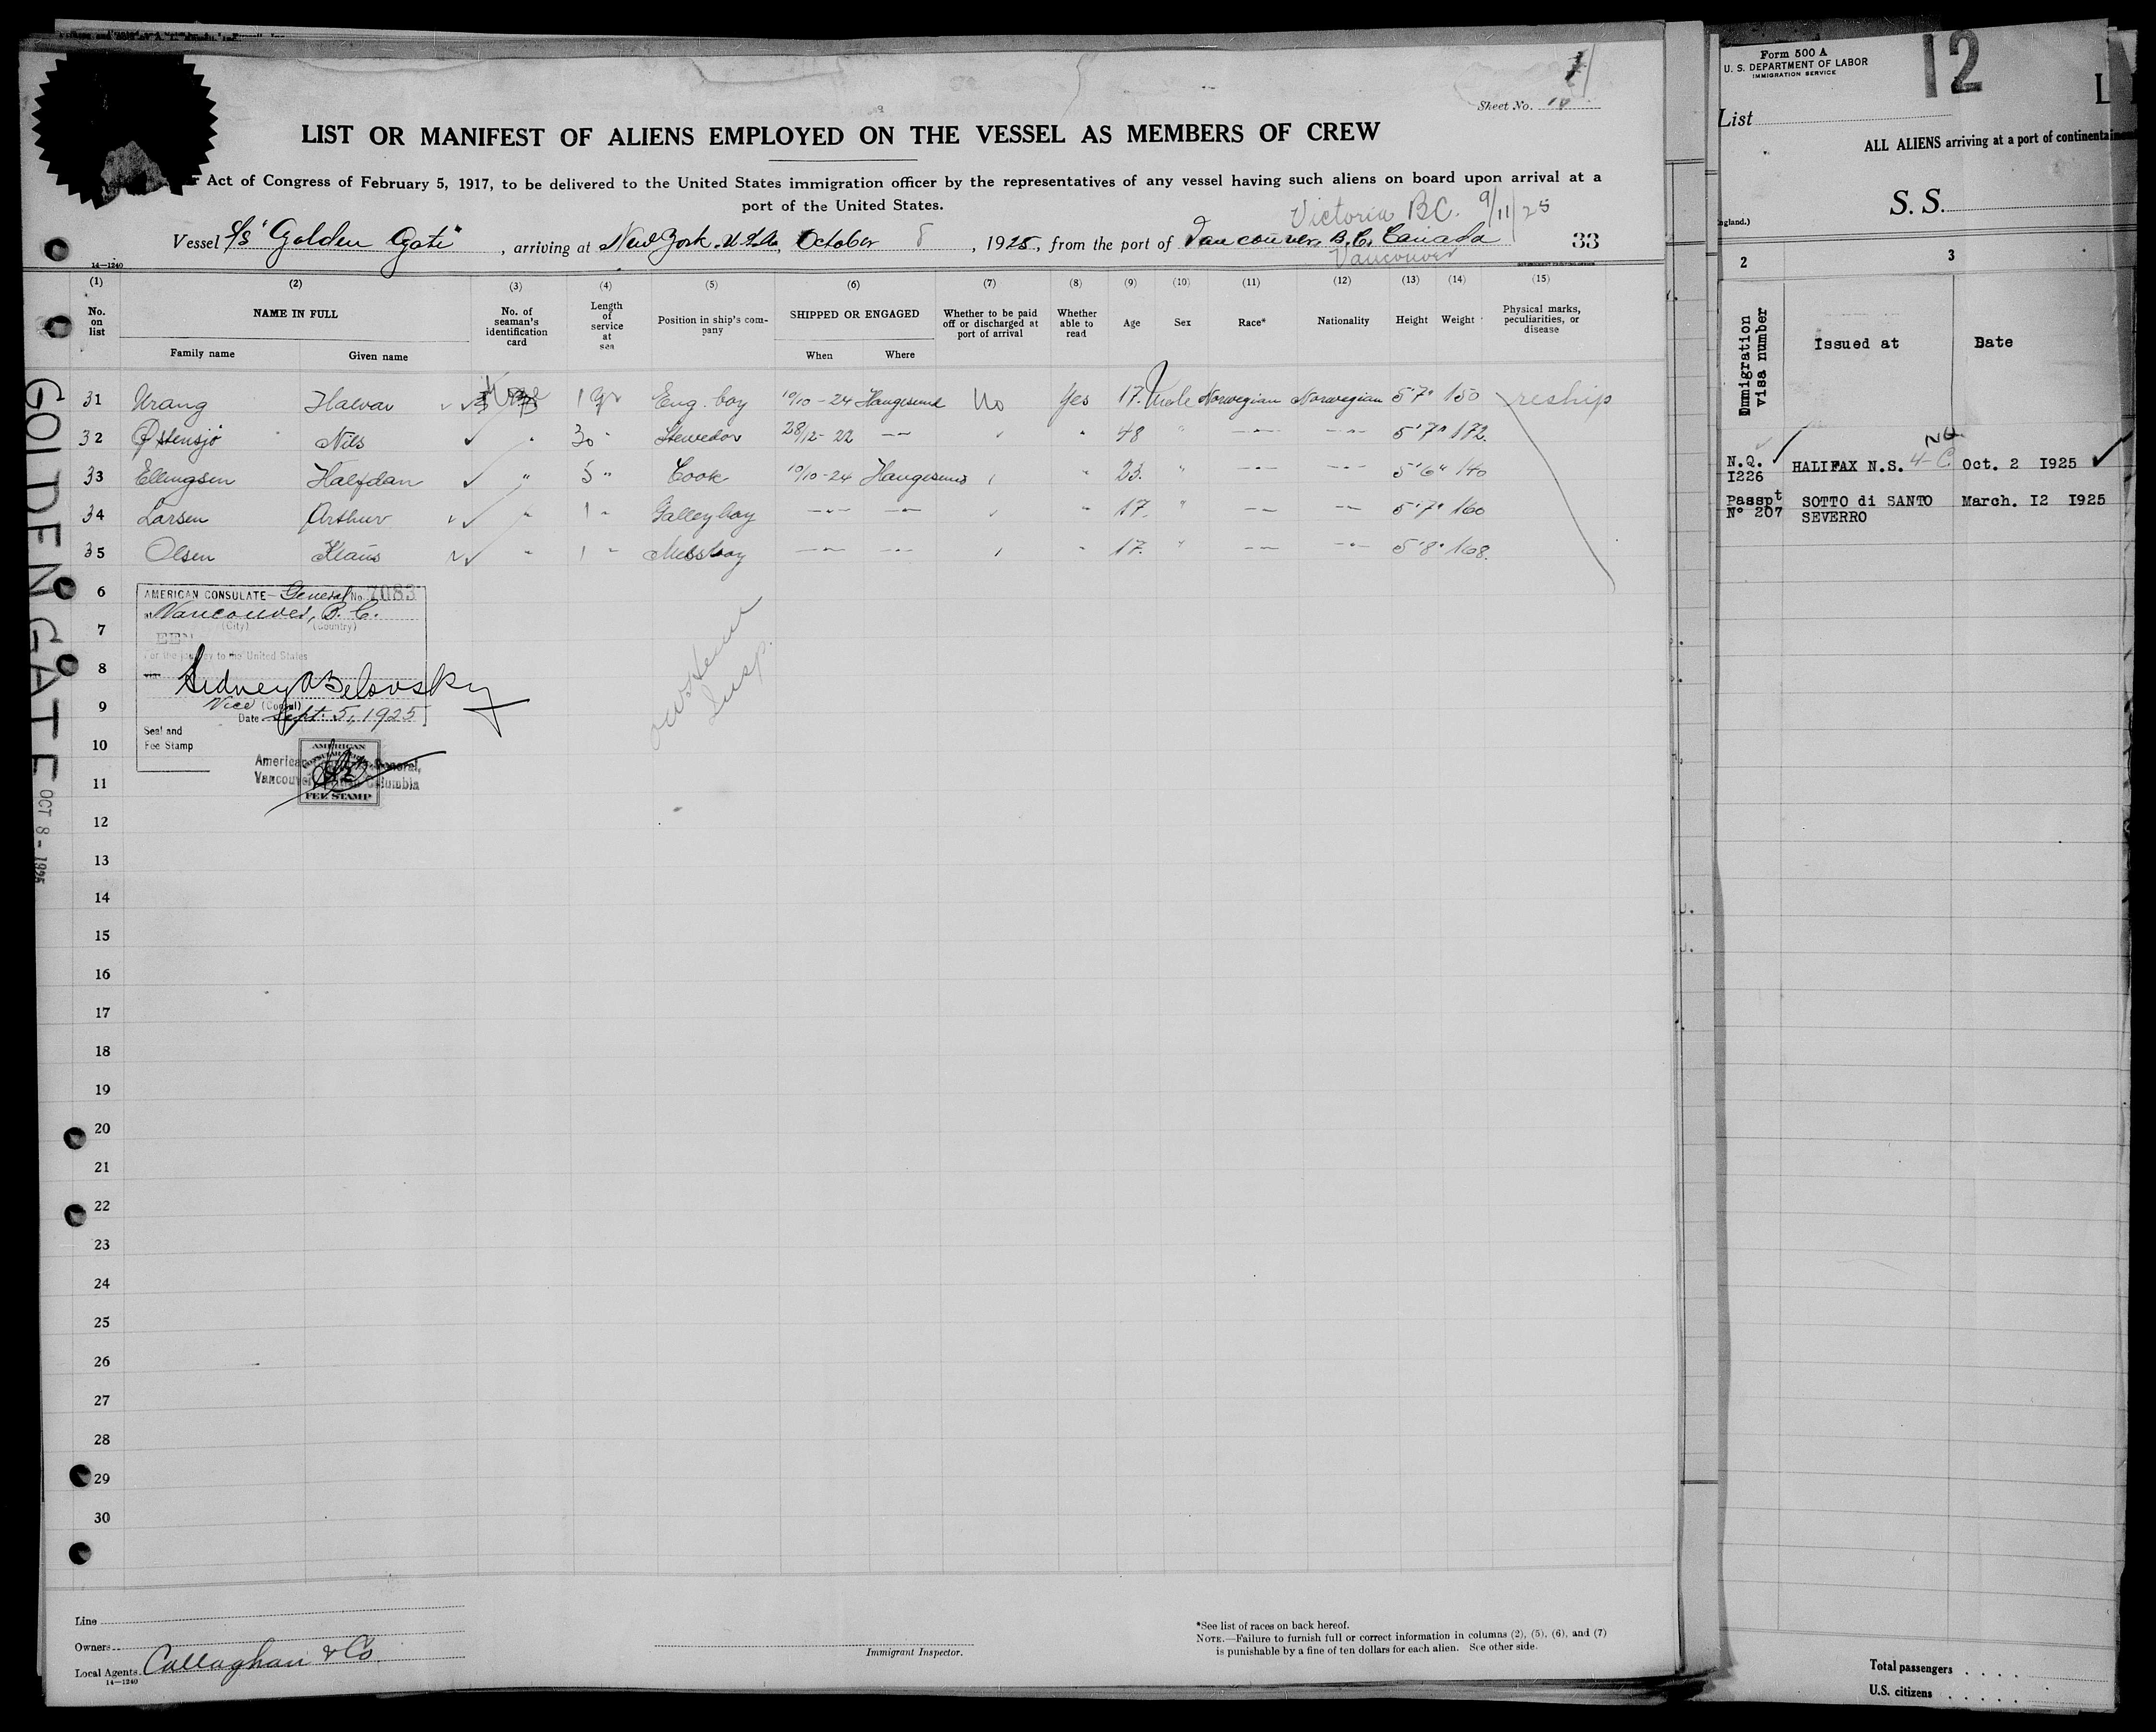 Sheet No.
LIST OR MANIFEST OF ALIENS EMPLOYED ON THE VESSEL AS MEMBERS OF CREW
Act of Congress of February 5, 1917, to be delivered to the United States immigration officer by the representatives of any vessel having such aliens on board upon arrival at a
port of the United States.
Victoria B.C. 9/11/25
Vessel S/S "Golden Gate", arriving at New York. U.S.A., October 8, 1925, from the port of Vancouver, B.C. Canada 33
Vancouver
14—1240
(1) (2) (3) (4) (5) (6) (7) (8) (9) (10) (11) (12) (13) (14) (15)
No. on list NAME IN FULL No. of seaman's identification card Length of service at sea Position in ship's company SHIPPED OR ENGAGED Whether to be paid off or discharged at port of arrival Whether able to read Age Sex Race* Nationality Height Weight Physical marks, peculiarities, or disease
Family name Given name When Where
31 Urang Halvar 1 yr Eng. boy 10/10-24 Haugesund No Yes 17. Male Norwegian Norwegian 5'7" 150 reship
32 Østensjö Nils " 30 " Stewedor 28/12-22 — " " 48 " — — 5'7" 172.
33 Ellingsen Halfdan " 5 " Cook 10/10-24 Haugesund " " 23. " — — 5'6" 140
34 Larsen Arthur " 1 " Galleyboy — — " " 17. " — — 5'7" 160
35 Olsen Klaus " 1 " Messboy — — " " 17. " — — 5'8" 168.
6
7
8
9
10
11
12
13
14
15
16
17
18
19
20
21
22
23
24
25
26
27
28
29
30
AMERICAN CONSULATE—General No. 7083
at Vancouver, B.C.
(City) (Country)
For the journey to the United States
Sidney A Belovsky
Vice (Consul)
Date Sept. 5, 1925
Seal and
Fee Stamp
AMERICAN
FEE STAMP
American General,
Vancouver Columbia
Insp.
GOLDEN GATE OCT 8 - 1925
Line
Owners
Local Agents Callaghan & Co.
14—1240
Immigrant Inspector.
*See list of races on back hereof.
NOTE.—Failure to furnish full or correct information in columns (2), (5), (6), and (7)
is punishable by a fine of ten dollars for each alien. See other side.
Form 500 A
U. S. DEPARTMENT OF LABOR
IMMIGRATION SERVICE
12
List
ALL ALIENS arriving at a port of continental
S. S.
2 3
Immigration visa number Issued at Date
N.Q. I226 HALIFAX N.S. 4-C NQ Oct. 2 I925
Passpt N° 207 SOTTO di SANTO SEVERRO March. I2 I925
Total passengers
U.S. citizens